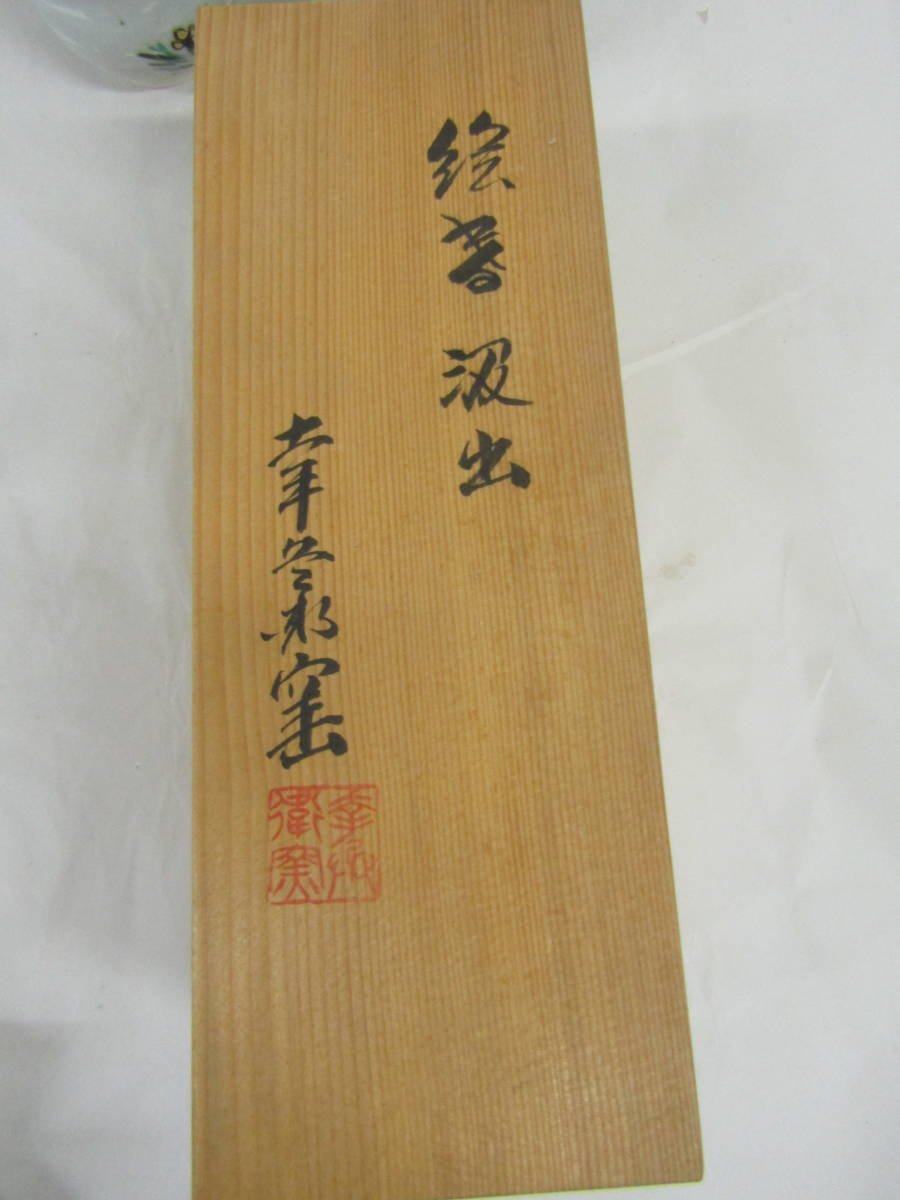 絵替 汲出
幸兵衛窯
幸兵衛窯